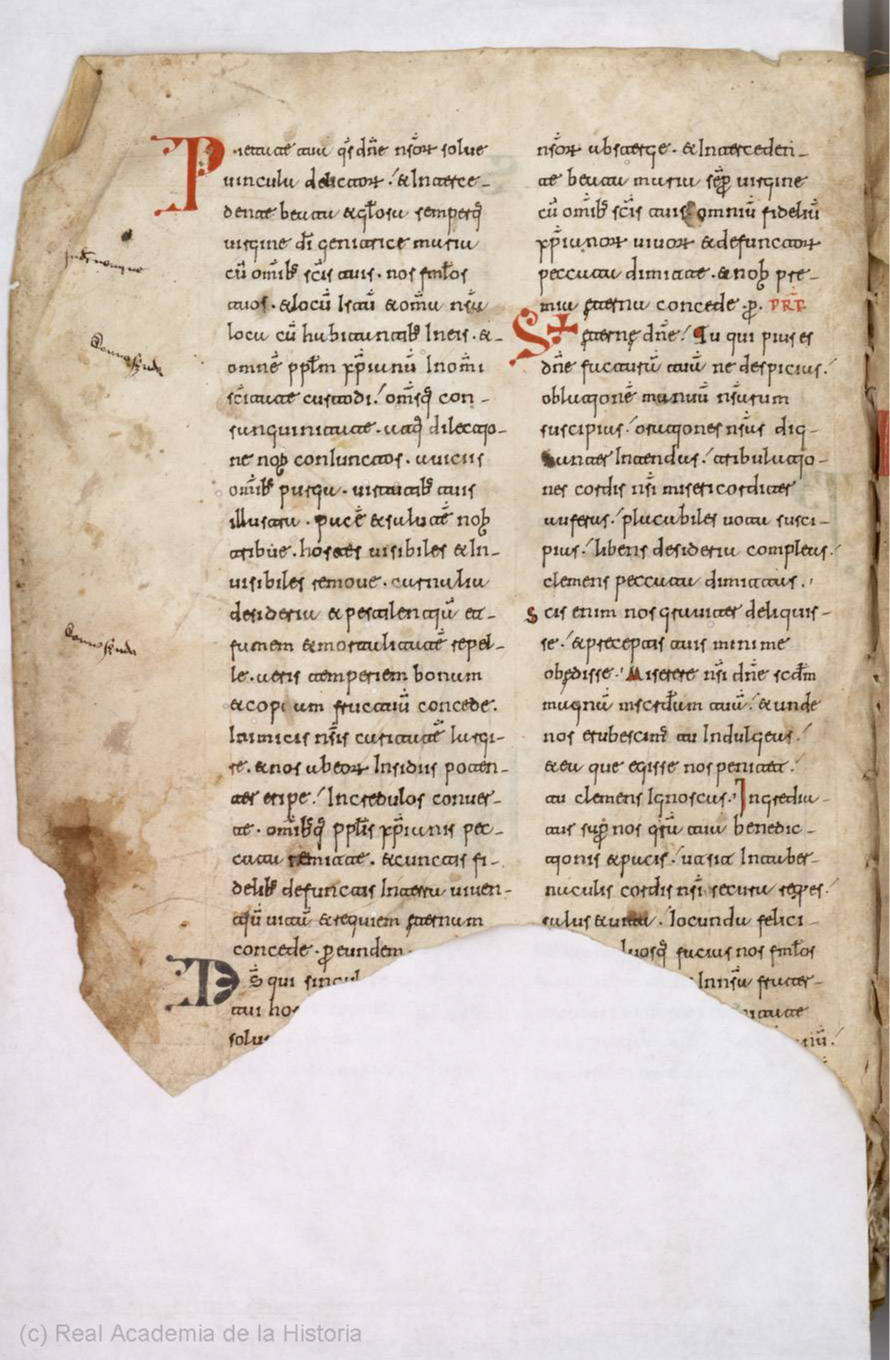 Pietate tua q̄s dn̄e nr̄or solue
uincula delictor · & Interce-
dente beata & gl̄osa semperq̄
uirgine dī genitrice maria
cū om̄ib sc̄is tuis · nos fm̄los
tuos · & locū Istū & om̄a nr̄a
loca cū habitantib Ineis · &-
omnē ppl̄m xp̄ianū Inom̄i
sc̄itate custodi · om̄sq̄ con-
sanguinitate · dilectio-
ne nob conIunctos · a uiciis
om̄ib purga · uirtutib tuis
illustra · pacē & salutē nob
tribue · hostes uisibiles & In-
uisibiles remoue · carnalia
desideria & pestilentiā et-
famem & mortalitatē repel-
le · ueris temperiem bonam
& copiam fructuū concede ·
Inimicis nr̄is caritatē largi-
re · & nos ab eor Insidiis poten-
ter eripe · Incredulos conuer-
te · om̄ibq̄ ppl̄is xp̄ianis pec-
cata remitte · & cunctis fi-
delib defunctis Interra uiuen-
tiū uitā & requiem eternam
concede · p eundem
Ds̄ qui singul
tui
solu
nr̄or absterge · & Intercedenti-
te beata maria sēp uirgine
cū om̄ib sc̄is tuis omniū fideliū
xp̄ianor uiuor & defunctor
peccata dimitte · & nob pre-
mia eterna concede · p · PR̄T
Sc̄te eterne dn̄e · Tu qui pius es
dn̄e facturā tuā ne despicias ·
oblationē manuū nr̄arum
suscipias · orationes nr̄as dig-
nanter Intendas · tribulatio-
nes cordis nr̄i misericorditer
auferas · placabiles uota susci-
pias · libens desideria compleas ·
clemens peccata dimittas ·
Scis enim nos grauiter deliquis-
se · & preceptis tuis minime
obedisse · Miserere nr̄i dn̄e sc̄dm
magnā msc̄rdiam tuā · & unde
nos erubescim̄ tu Indulgeas ·
& ea que egisse nos penitet ·
tu clemens Ignoscas · Ingredia-
tur sup nos grā tua benedic-
tionis & pacis · Intaber-
naculis cordis nr̄i secura
salus & uita · Iocunda felici-
facias nos fm̄los